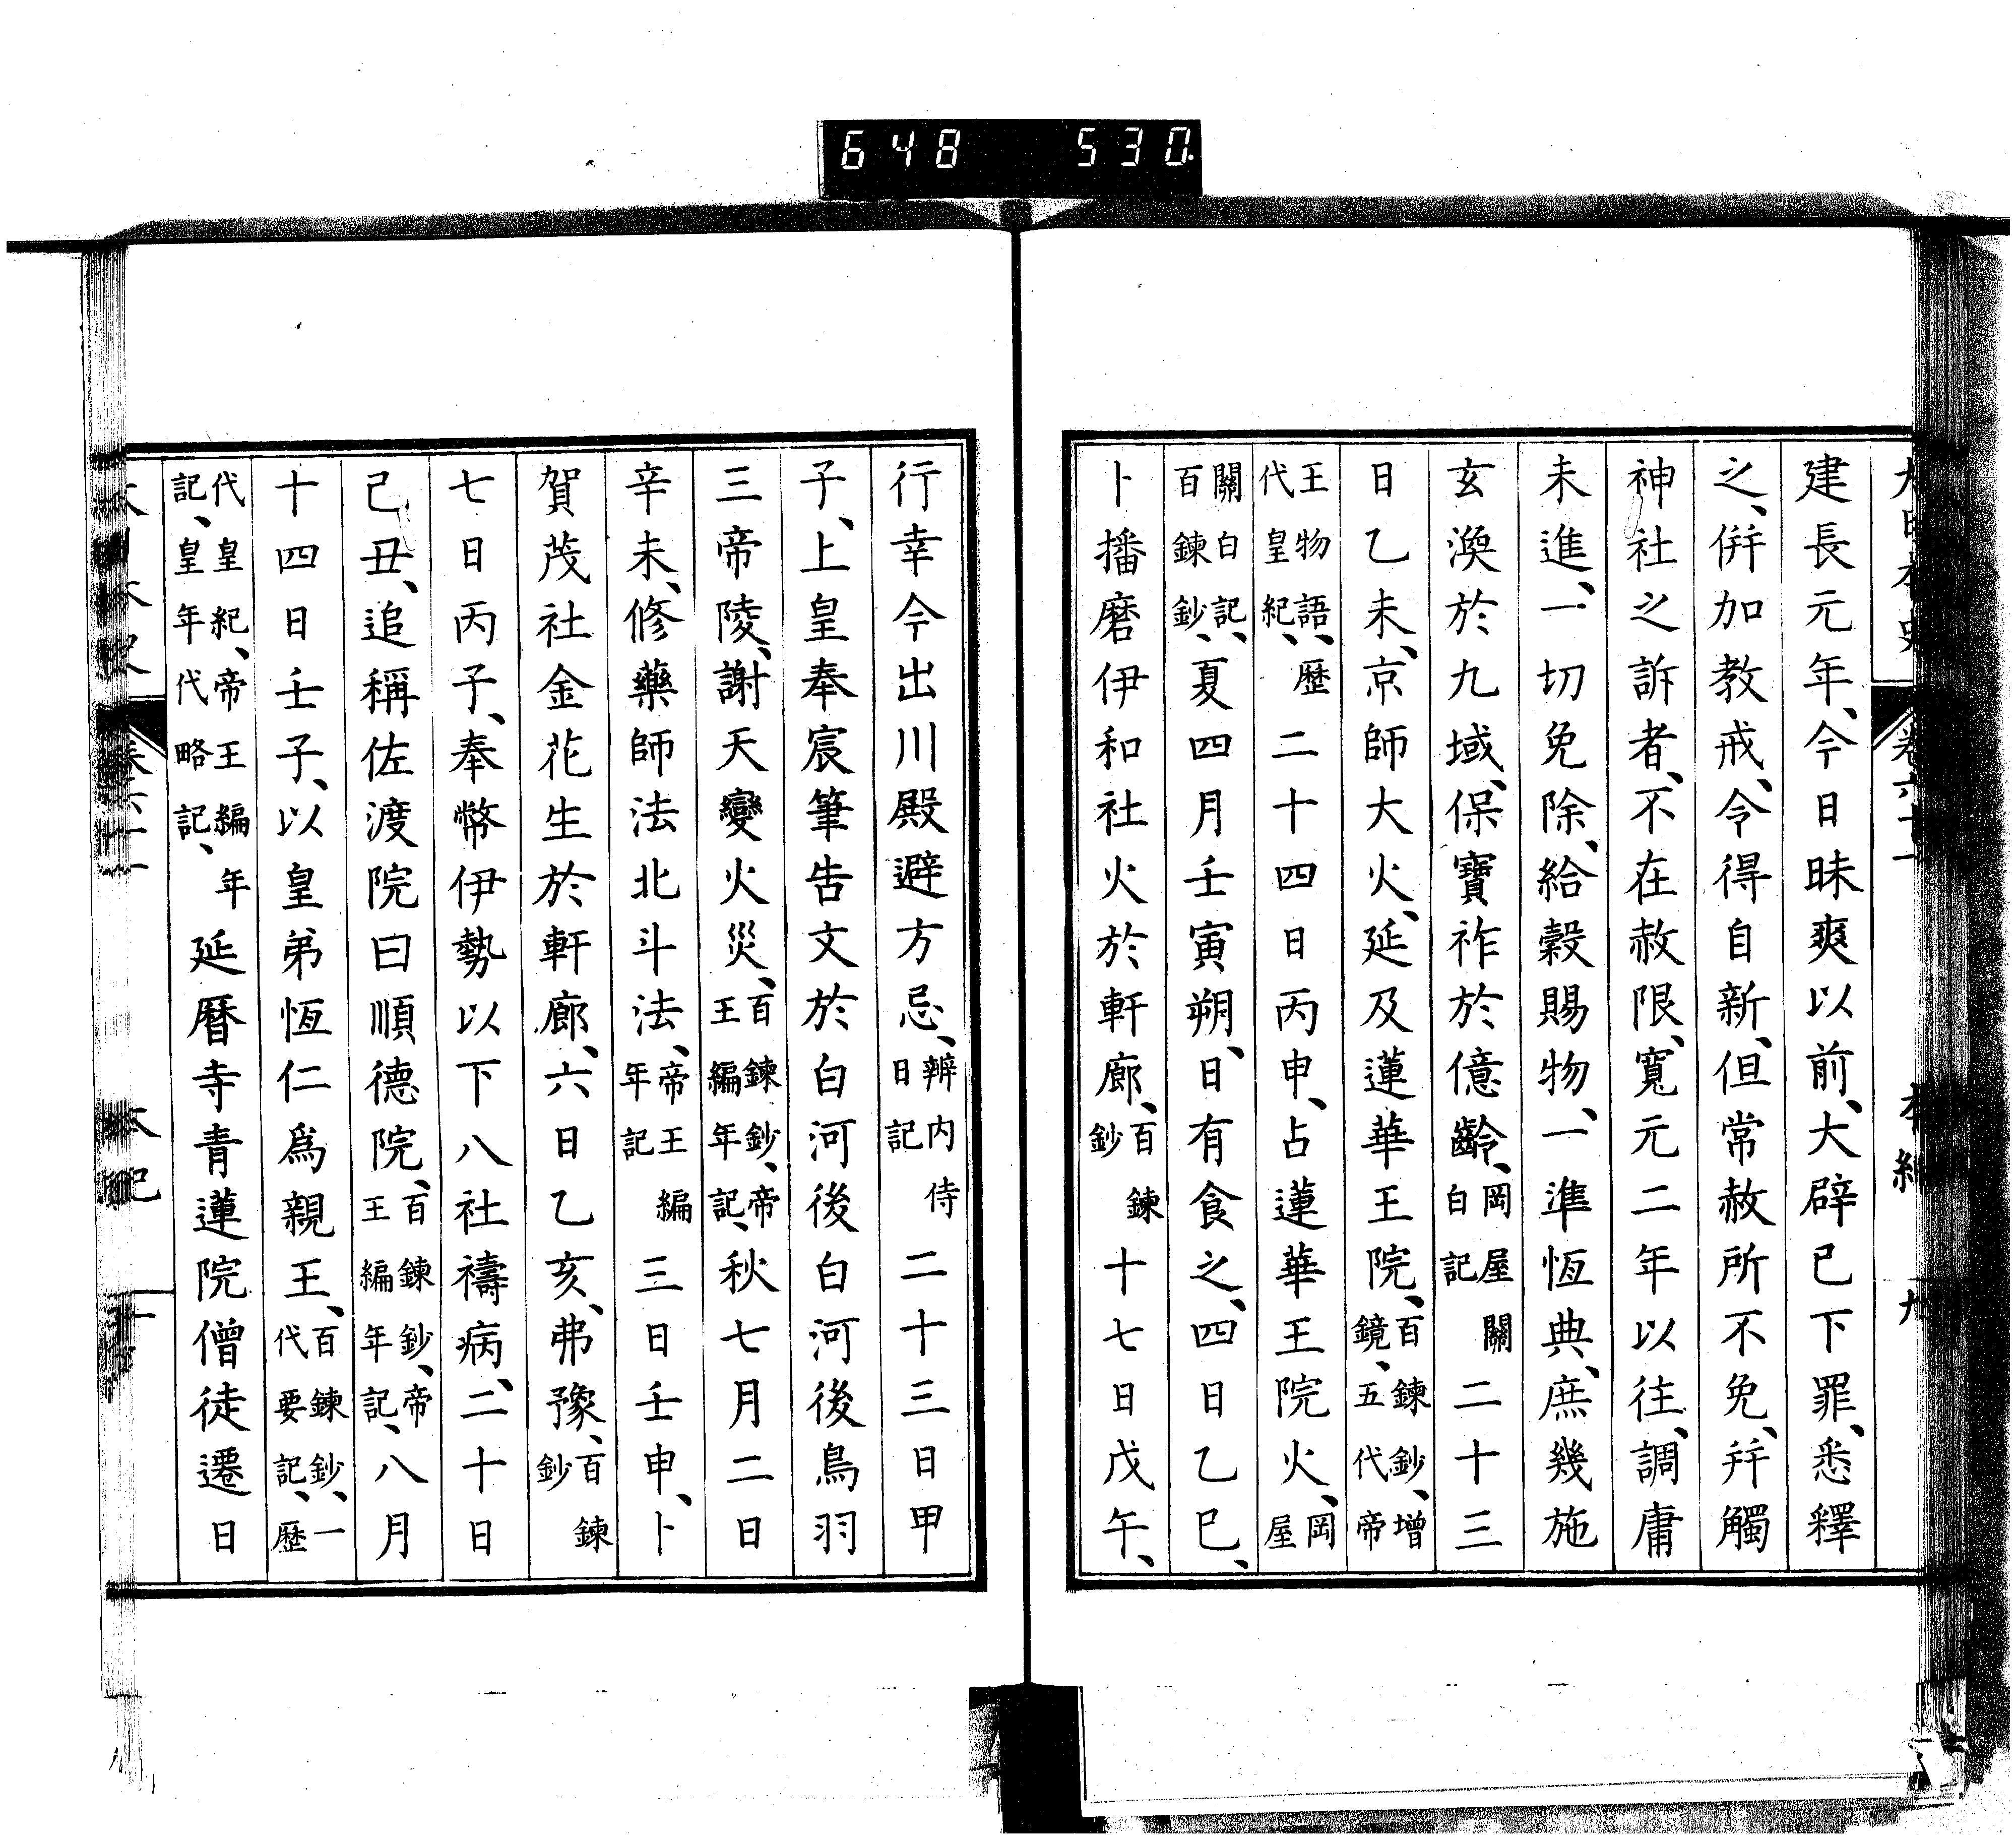 648 530
建長元年、今日昧爽以前、大辟已下罪、悉釋
之、併加教戒、令得自新、但常赦所不免、幷觸
神社之訴者、不在赦限、寬元二年以往、調庸
未進、一切免除、給穀賜物、一準恆典、庶幾施
玄渙於九域、保寶祚於億齡、岡屋關白記二十三
日乙未、京師大火、延及蓮華王院、百鍊鈔、增鏡、五代帝
王物語、歷代皇紀、二十四日丙申、占蓮華王院火、岡屋
關白記、百鍊鈔、夏四月壬寅朔、日有食之、四日乙巳、
卜播磨伊和社火於軒廊、百鍊鈔十七日戊午、
行幸今出川殿避方忌、辨內侍日記二十三日甲
子、上皇奉宸筆告文於白河後白河後鳥羽
三帝陵、謝天變火災、百鍊鈔、帝王編年記、秋七月二日
辛未、修藥師法北斗法、帝王編年記三日壬申、卜
賀茂社金花生於軒廊、六日乙亥、弗豫、百鍊鈔
七日丙子、奉幣伊勢以下八社禱病、二十日
己丑、追稱佐渡院曰順德院、百鍊鈔、帝王編年記、八月
十四日壬子、以皇弟恆仁爲親王、百鍊鈔、一代要記、歷
代皇紀、帝王編年記、皇年代略記、延曆寺青蓮院僧徒遷日